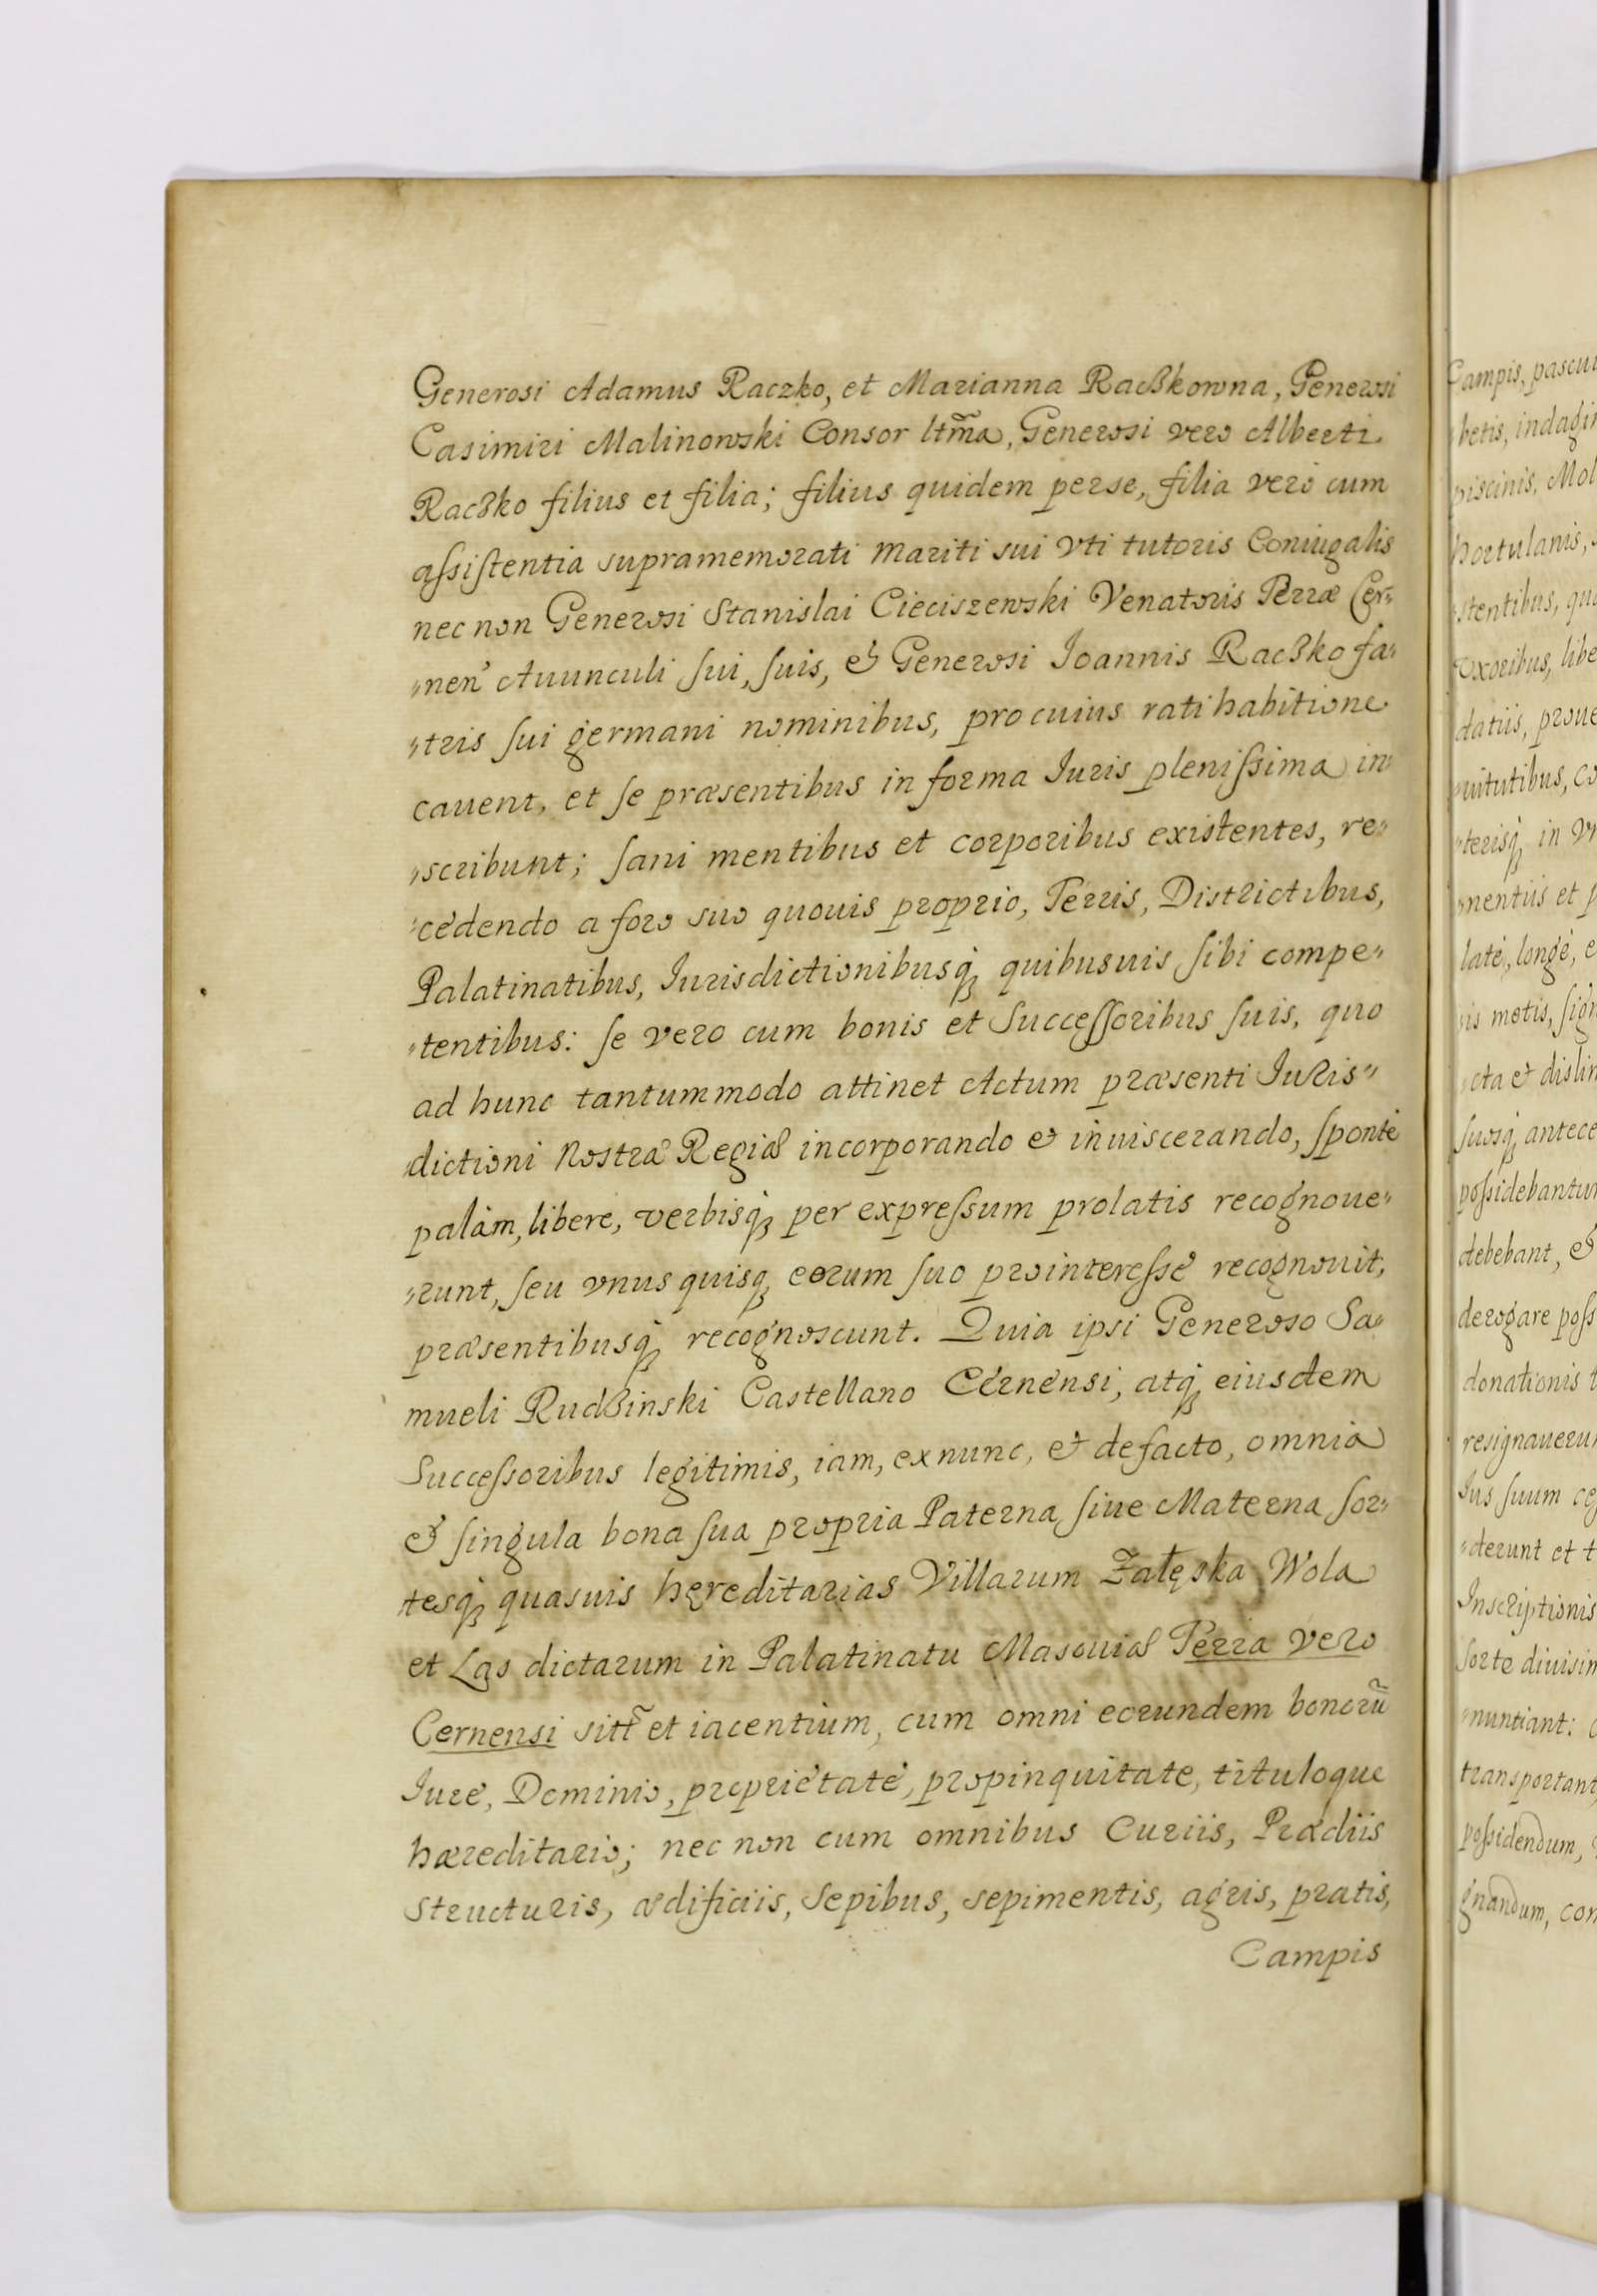 Generosi Adamus Raczko, et Marianna Raczkowna, Generosi
Casimiri Malinowski Consor ltma, Generosi vero Alberti
Raczko filius et filia; filius quidem per se, filia vero cum
assistentia supramemorati mariti sui vti tutoris Coniugalis
nec non Generosi Stanislai Cieciszewski Venatoris Terræ Cer„
„nen Auunculi sui, suis, & Generosi Ioannis Raczko fa„
„tris sui germani nominibus, pro cuius ratihabitione
cauent, et se præsentibus in forma Iuris plenissima in„
„scribunt; sani mentibus et corporibus existentes, re„
„cedendo a foro suo quouis proprio, Terris, Districtibus,
Palatinatibus, Iurisdictionibusq₃ quibusuis sibi compe„
„tentibus: se vero cum bonis et Successoribus suis, quo
ad hunc tantummodo attinet Actum præsenti Iuris„
dictioni Nostræ Regiæ incorporando & inuiscerando, sponte
palàm, libere, verbisq₃ per expressum prolatis recognoue„
„runt, seu vnus quisq₃ eorum suo pro interesse recognouit,
præsentibusq₃ recognoscunt. Quia ipsi Generoso Sa„
mueli Rudzinski Castellano Cernensi, atq₃ eiusdem
Successoribus legitimis, iam, ex nunc, & de facto, omnia
& singula bona sua propria Paterna siue Materna sor„
tesq₃ quasuis hęreditarias Villarum Załęska Wola
et Łąs dictarum in Palatinatu Masouiæ Terra vero
Cernensi sitt̃ et iacentium, cum omni eorundem bonorũ
Iure, Dominio, proprietate, propinquitate, tituloque
hæreditario; nec non cum omnibus Curiis, Prædiis
structuris, ædificiis, sepibus, sepimentis, agris, pratis,
Campis
Campis, pascui
hortulanis,
stentibus,
Vxoribus, libe
„terisq₃ in
„nentiis et
latè, longè, e
„cta & distin
suosq₃ antece
possidebantur
debebant, &
derogare poss
donationis
resignauerun
Ius suum
„derunt et
Inscriptionis
sorte diuisim
„nuntiant:
transportant
possidendum,
gnandum, con